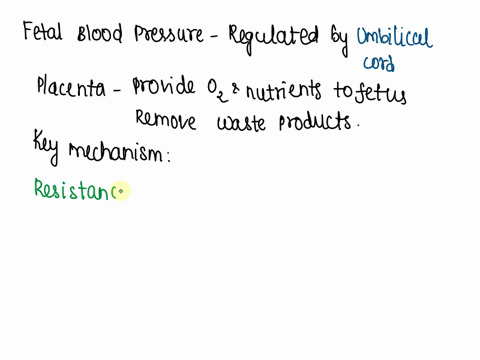 Fetal Blood Pressure - Regulated by Umbilical
cord
Placenta - Provide O₂ & nutrients to fetus
Remove waste products.
Key mechanism:
Resistanc